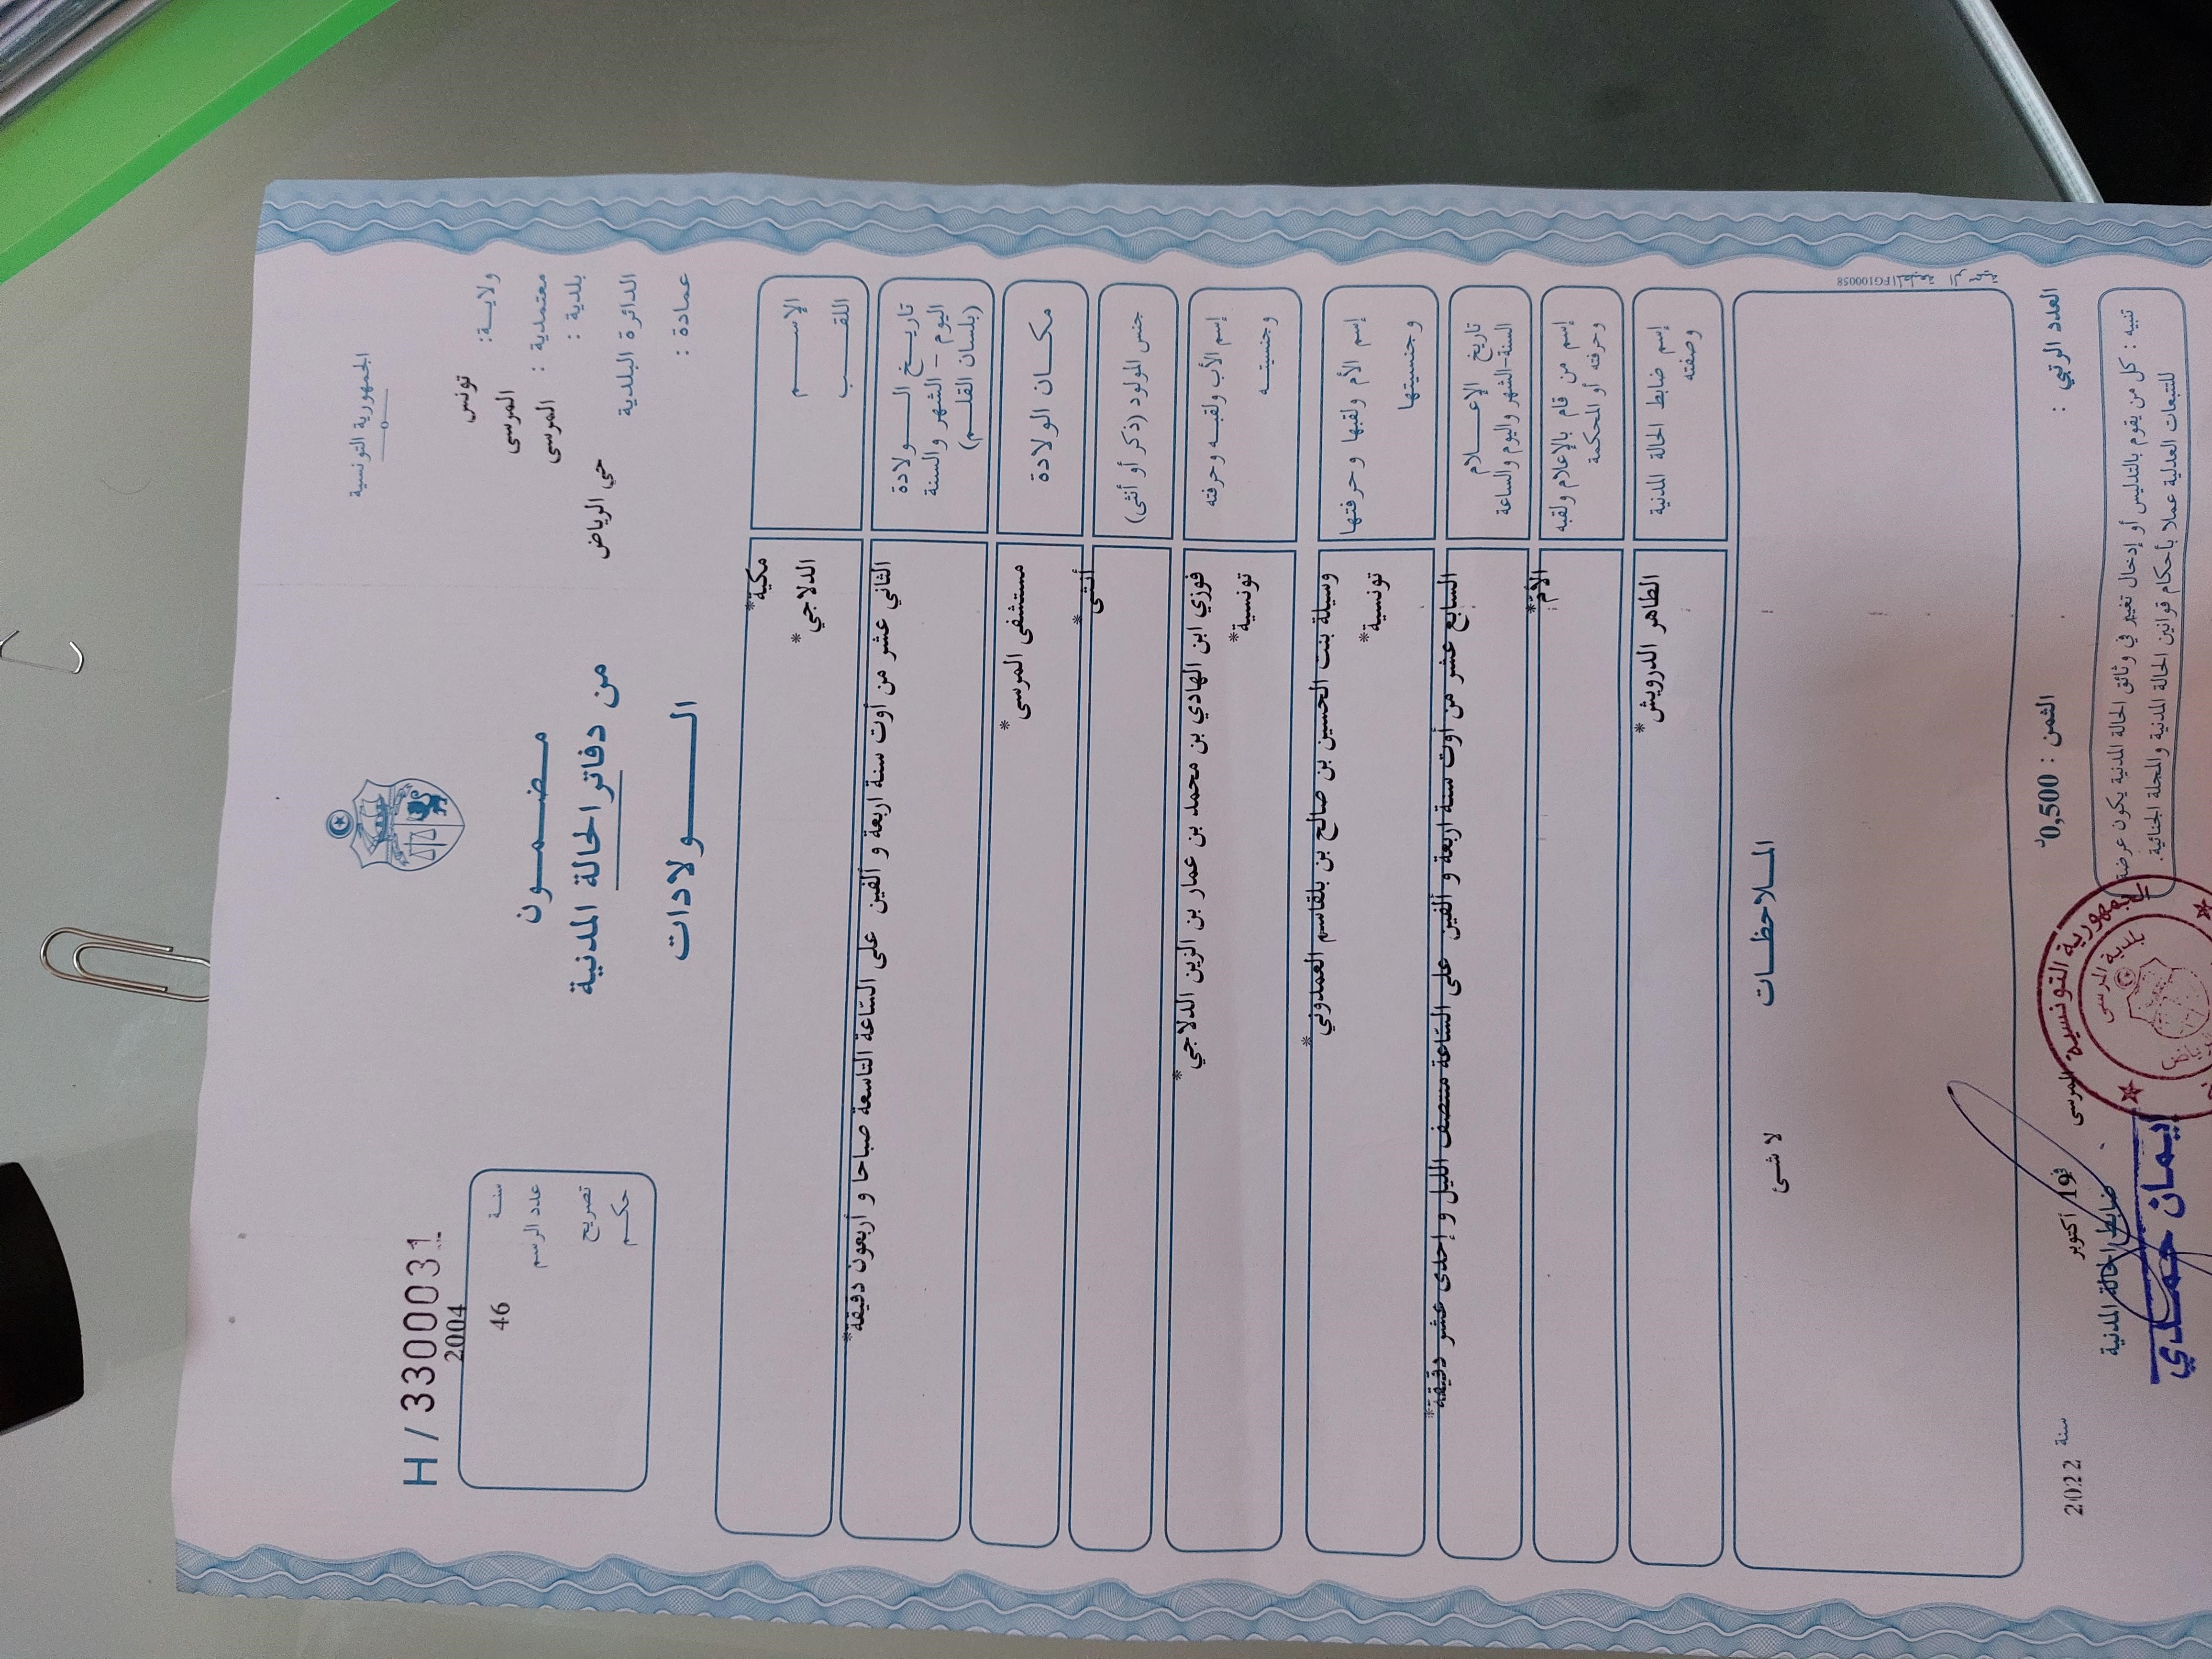 الجمهورية التونسية
ولاية: تونس
معتمدية : المرسى
بلدية : المرسى
الدائرة البلدية حي الرياض
عمادة :
H / 3300031
2004 سنة
46 عدد الرسم
تصريح
حكم
مضمون
من دفاتر الحالة المدنية
الولادات
الإسم مكية*
اللقب الدلاجي*
تاريخ الولادة الثاني عشر من أوت سنة اربعة و ألفين على الساعة التاسعة صباحا و أربعون دقيقة*
اليوم - الشهر والسنة
(بلسان القلم)
مكان الولادة مستشفى المرسى*
جنس المولود (ذكر أو أنثى) أنثى*
إسم الأب ولقبه وحرفته فوزي ابن الهادي بن محمد بن عمار بن الزين الدلاجي*
وجنسيته تونسية*
إسم الأم ولقبها وحرفتها وسيلة بنت الحسين بن صالح بن بلقاسم العمدوني*
وجنسيتها تونسية*
تاريخ الإعلام السابع عشر من أوت سنة اربعة و ألفين على الساعة منتصف الليل و إحدى عشر دقيقة*
السنة-الشهر واليوم والساعة
إسم من قام بالإعلام ولقبه الأم*
وحرفته أو المحكمة
إسم ضابط الحالة المدنية الطاهر الدرويش*
وصفته
الملاحظات
لا شئ
المطبعة الرسمية FG100058
العدد الرتبي :
الثمن : 0,500د
المرسى في 19 أكتوبر سنة 2022
ضابط الحالة المدنية
تنبيه : كل من يقوم بالتدليس أو إدخال تغيير في وثائق الحالة المدنية يكون عرضة
للتتبعات العدلية عملا بأحكام قوانين الحالة المدنية والمجلة الجنائية.
الجمهورية التونسية
بلدية المرسى
إيمان حمدي